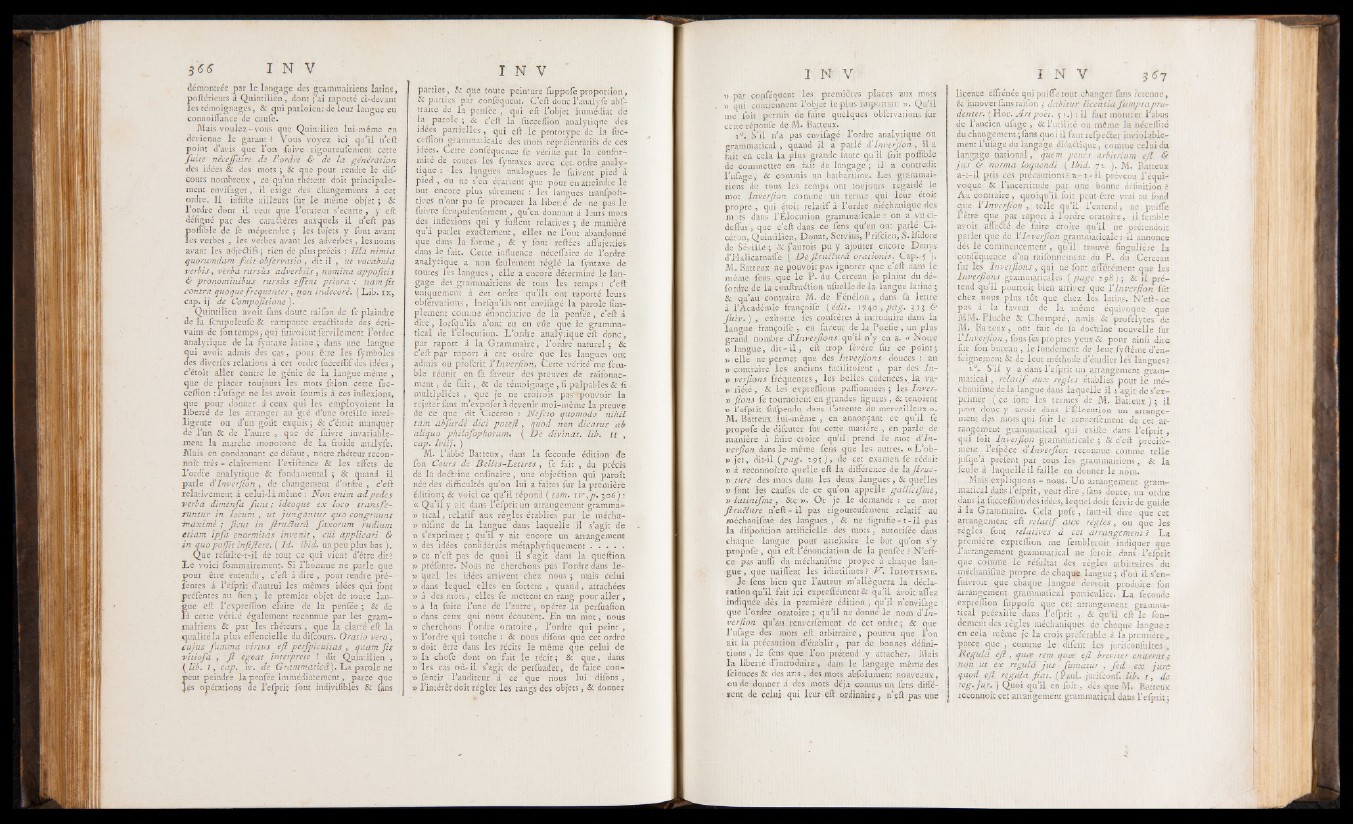 366 I N V
démontrée par le langage des grammairiens latins,
poſtérieurs à Quintilien, dont j'ai raporté ci-devant
les témoignages, & qui parloient de leur langue en
connoiſſance de cauſe.
Mais voulez-vous que Quintilien lui-même en
devienne le garant ? Vous voyez ici qu'il n'eſt
point d'avis que l'on ſuive rigoureuſement cette
ſuite néceſſaire de l'ordre & de la génération
des idées & des mots ; & que pour rendre le diſ-
cours nombreux, ce qu'un rhéteur doit principale-
ment enviſager, il exige des changements à cet
ordre. Il inſiſte ailleurs ſur le même objet ; &
l'ordre dont il veut que l'orateur s'écarte, y eſt
déſigné par des caractères auxquels il n'eſt pas
poſſible de ſe méprendre ; les ſujets y ſont avant
les verbes, les verbes avant les adverbes, les noms
avant les adjectifs ; rien de plus précis : Illa nimia
quorumdam fuit obſervatio, dit-il, ut vocabula
verbis, verba rursùs adverbiis, nomina appoſitis
& pronominibus rursùs eſſent priora : nam fit
contra quoque frequenter, non indecorè. (Lib. ix,
cap. iv de Compoſitione).
Quintilien avoit ſans doute raiſon de ſe plaindre
de la ſcrupuleuſe & rampante exactitude des écri-
vains de ſon temps, qui ſuivoient ſervilement l'ordre
analytique de la ſyntaxe latine ; dans une langue
qui avoit admis des cas, pour être les ſymboles
des diverſes relations à cet ordre ſucceſſif des idées,
c'étoit aller contre le génie de la langue même,
que de placer toujours les mots ſelon cette ſuc-
ceſſion : l'uſage ne les avoit ſoumis à ces inflexions,
que pour donner à ceux qui les employoient la
liberté de les arranger au gré d'une oreille intel-
ligente ou d'un goût exquis ; & c'étoit manquer
de l'un & de l'autre, que de ſuivre invariable-
ment la marche monotone de la froide analyſe.
Mais en condannant ce défaut, notre rhéteur recon-
noît très-clairement l'exiſtence & les effets de
l'ordre analytique & fondamental ; & quand il
parle d'Inverſion, de changement d'ordre, c'eſt
relativement à celui-là même : Non enim ad pedes
verba dimenſa ſunt ; ideoque ex loco transfe-
runtur in locum, ut jungantur quo congruunt
maximè ; ſicut in ſtructurâ ſaxorum rudium
etiam ipſa enormitas invenit, cui applicari &
in quo poſſit inſiſtere. (Id. ibid. un peu plus bas).
Que réſulte-t-il de tout ce qui vient d'être dit?
Le voici ſommairement. Si l'homme ne parle que
pour être entendu, c'eſt à dire, pour rendre pré-
ſentes à l'eſprit d'autrui les mêmes idées qui ſont
préſentes au ſien ; le premier objet de toute lan-
gue eſt l'expreſſion claire de la penſée ; & de
là cette vérité également reconnue par les gram-
mairiens & par les rhéteurs, que la clarté eſt la
qualité la plus eſſencielle du diſcours. Oratio vero,
cujus ſumma virtus eſt perſpicuitas, quam ſit
vitioſa, ſi egeat interprete ! dit Quintilien,
(lib. 1, cap. iv. de Grammaticâ). La parole ne
peut peindre la penſée immédiatement, parce que
les opérations de l'eſprit ſont indiviſibles & ſans
I N V
parties, & que toute peinture ſuppoſe proportion,
& parties par conſéquent. C'eſt donc l'analyſe abſ-
traite de la penſée, qui eſt l'objet immédiat de
la parole ; & c'eſt la ſucceſſion analytique des
idées partielles, qui eſt le prototype de la ſuc-
ceſſion grammaticale des mots repréſentatifs de ces
idées. Cette conſéquence ſe vérifie par la confor-
mité de toutes les ſyntaxes avec cet ordre analy-
tique : les langues analogues le ſuivent pied à
pied, on ne s'en écartent que pour en atteindre le
but encore plus sûrement ; les langues tranſpoſi-
tives n'ont pu ſe procurer la liberté de ne pas le
ſuivre ſcrupuleuſement, qu'en donnant à leurs mots
des inflexions qui y fuſſent relatives ; de manière
qu'à parler exactement, elles ne l'ont abandonné
que dans la forme, & y ſont reſtées aſſujetties
dans le fait. Cette influence néceſſaire de l'ordre
analytique a non ſeulement réglé la ſyntaxe de
toutes les langues, elle a encore déterminé le lan-
gage des grammairiens de tous les temps : c'eſt
uniquement à cet ordre qu'ils ont raporté leurs
obſervations, lorſqu'ils ont enviſagé la parole ſim-
plement comme énonciative de la penſée, c'eſt à
dire, lorſqu'ils n'ont eu en vûe que le gramma-
tical de l'élocution. L'ordre analytique eſt donc,
par raport à la Grammaire, l'ordre naturel ; &
c'eſt par raport à cet ordre que les langues ont
admis ou proſcrit l'Inverſion. Cette vérité me ſem-
ble réunir en ſa faveur des preuves de raiſonne-
ment, de fait, & de témoignage, ſi palpables & ſi
multipliées, que je ne croirois pas pouvoir la
rejeter ſans m'expoſer à devenir moi-même la preuve
de ce que dit Cicéron : Neſcio quomodo nihil
tam abſurdè dici poteſt, quod non dicatur ab
aliquo philoſophorum. (De divinat. lib. 11,
cap. lviij.)
M. l'abbé Batteux, dans la ſeconde édition de
ſon Cours de Belles-Lettres, ſe fait, du précis
de la doctrine ordinaire, une objection qui paroît
née des difficultés qu'on lui a faites ſur la première
édition ; & voici ce qu'il répond (tom. iv. p. 306):
« Qu'il y ait dans l'eſprit un arrangement gramma-
» tical, relatif aux règles établies par le mécha-
» niſme de la langue dans laquelle il s'agit de
» s'exprimer ; qu'il y ait encore un arrangement
» des idées conſidérées métaphyſiquement . . . . .
» ce n'eſt pas de quoi il s'agit dans la queſtion
» préſente. Nous ne cherchons pas l'ordre dans le-
» quel les idées arrivent chez nous ; mais celui
» dans lequel elles en ſortent, quand, attachées
» à des mots, elles ſe mettent en rang pour aller,
» à la ſuite l'une de l'autre, opérer la perſuaſion
» dans ceux qui nous écoutent. En un mot, nous
» cherchons l'ordre oratoire, l'ordre qui peint,
» l'ordre qui touche : & nous diſons que cet ordre
» doit être dans les récits le même que celui de
» la choſe dont on fait le récit ; & que, dans
» les cas où il s'agit de perſuader, de faire con-
» ſentir l'auditeur à ce que nous lui diſons,
» l'intérêt doit régler les rangs des objets, & donner
I N V
» par conſéquent les premières places aux mots
» qui contiennent l'objet le plus important ». Qu'il
me ſoit permis de faire quelques obſervations ſur
cette réponſe de M. Batteux.
1°. S'il n'a pas enviſagé l'ordre analytique ou
grammatical, quand il a parlé d'Inverſion, il a
fait en cela la plus grande faute qu'il ſoit poſſible
de commettre en fait de langage ; il a contredit
l'uſage, & commis un barbariſme. Les grammai-
riens de tous les temps ont toujours regardé le
mot Inverſion comme un terme qui leur étoit
propre, qui étoit relatif à l'ordre méchanique des
mots dans l'Élocution grammaticale : on a vu ci-
deſſus, que c'eſt dans ce ſens qu'en ont parlé Ci-
céron, Quintilien, Donat, Servius, Priſcien, S. Iſidore
de Séville ; & j'aurois pu y ajouter encore Denys
d'Halicarnaſſe (De ſtructurâ orationis. Cap. 5).
M. Batteux ne pouvoit pas ignorer que c'eſt dans le
même ſens que le P. du Cerceau ſe plaint du dé-
ſordre de la conſtruction uſuelle de la langue latine ;
& qu'au contraire M. de Fénélon, dans ſa lettre
à l'Académie françoiſe (édit. 1740, pag. 313 &
ſuiv.), exhorte ſes confrères à introduire dans la
langue françoiſe, en faveur de la Poéſie, un plus
grand nombre d'Inverſions qu'il n'y en a. « Notre
» langue, dit-il, eſt trop ſévère ſur ce point ;
» elle ne permet que des Inverſions douces : au
» contraire les anciens facilitoient, par des In-
» verſions fréquentes, les belles cadences, la va-
» riété, & les expreſſions paſſionnées ; les Inver-
» ſions ſe tournoient en grandes figures, & tenoient
» l'eſprit ſuſpendu dans l'attente du merveilleux ».
M. Batteux lui-même, en annonçant ce qu'il ſe
propoſe de diſcuter ſur cette matière, en parle de
manière à faire croire qu'il prend le mot d'In-
verſion dans le même ſens que les autres. « L'ob-
» jet, dit-il (pag. 295), de cet examen ſe réduit
» à reconnoître quelle eſt la différence de la ſtruc-
» ture des mots dans les deux langues, & quelles
» ſont les cauſes de ce qu'on appelle galliciſme,
» latiniſme, &c ». Or je le demande : ce mot
ſtructure n'eſt-il pas rigoureuſement relatif au
méchaniſme des langues, & ne ſignifie-t-il pas
la diſpoſition artificielle des mots, autoriſée dans
chaque langue pour atteindre le but qu'on s'y
propoſe, qui eſt l'énonciation de la penſée ? N'eſt-
ce pas auſſi du méchaniſme propre à chaque lan-
gue, que naiſſent les idiotiſmes ? V. IDIOTISME.
Je ſens bien que l'auteur m'alléguera la décla-
ration qu'il fait ici expreſſément & qu'il avoit aſſez
indiquée dès la première édition, qu'il n'enviſage
que l'ordre oratoire ; qu'il ne donne le nom d'In-
verſion qu'au renverſement de cet ordre ; & que
l'uſage des mots eſt arbitraire, pourvu que l'on
ait la précaution d'établir, par de bonnes défini-
tions, le ſens que l'on prétend y attacher. Mais
la liberté d'introduire, dans le langage même des
ſciences & des arts, des mots abſolument nouveaux,
ou de donner à des mots déja connus un ſens diffé-
rent de celui qui leur eſt ordinaire, n'eſt pas une
I N V 367
licence effrénée qui puiſſe tout changer ſans retenue,
& innover ſans raiſon ; dabitur licentia ſumpta pru-
denter. (Hor. Art poét. 51.) : il faut montrer l'abus
de l'ancien uſage, & l'utilité ou même la néceſſité
du changement ; ſans quoi il faut reſpecter inviolable-
ment l'uſage du langage didactique, comme celui du
langage national, quem penes arbitrium eſt &
jus & norma loquendi. (Ibid. 72). M. Batteux
a-t-il pris ces précautions ? a-t-il prévenu l'équi-
voque & l'incertitude par une bonne définition ?
Au contraire, quoiqu'il ſoit peut-être vrai au fond
que l'Inverſion, telle qu'il l'entend, ne puiſſe
l'être que par raport à l'ordre oratoire, il ſemble
avoir affecté de faire croire qu'il ne prétendoit
parler que de l'Inverſion grammaticale : il annonce
dès le commencement, qu'il trouve ſingulière la
conſéquence d'un raiſonnement du P. du Cerceau
ſur les Inverſions, qui ne ſont aſſûrément que les
Inverſions grammaticales (page 298) ; & il pré-
tend qu'il pourroit bien arriver que l'Inverſion fût
chez nous plus tôt que chez les latins. N'eſt-ce
pas à la faveur de la même équivoque que
MM. Pluche & Chompré, amis & proſélytes de
M. Batteux, ont fait de ſa doctrine nouvelle ſur
l'Inverſion, ſous ſes propres yeux & pour ainſi dire
ſur ſon bureau, le fondement de leur ſyſtême d'en-
ſeignement & de leur méthode d'étudier les langues ?
2°. S'il y a dans l'eſprit un arrangement gram-
matical, relatif aux règles établies pour le mé-
chaniſme de la langue dans laquelle il s'agit de s'ex-
primer (ce ſont les termes de M. Batteux) ; il
peut donc y avoir dans l'Élocution un arrange-
ment des mots qui ſoit le renverſement de cet ar-
rangement grammatical qui exiſte dans l'eſprit,
qui ſoit Inverſion grammaticale ; & c'eſt préciſé-
ment l'eſpèce d'Inverſion reconnue comme telle
juſqu'à préſent par tous les grammairiens, & la
ſeule à laquelle il faille en donner le nom.
Mais expliquons-nous. Un arrangement gram-
matical dans l'eſprit, veut dire, ſans doute, un ordre
dans la ſucceſſion des idées, lequel doit ſervir de guide
à la Grammaire. Cela poſé, faut-il dire que cet
arrangement eſt relatif aux règles, ou que les
règles ſont relatives à cet arrangement ? La
première expreſſion me ſembleroit indiquer que
l'arrangement grammatical ne ſeroit dans l'eſprit
que comme le réſultat des règles arbitraires du
méchaniſme propre de chaque langue ; d'où il s'en-
ſuivroit que chaque langue devroit produire ſon
arrangement grammatical particulier. La ſeconde
expreſſion ſuppoſe que cet arrangement gramma-
tical préexiſte dans l'eſprit, & qu'il eſt le fon-
dement des règles méchaniques de chaque langue :
en cela même je la crois préférable à la première,
parce que, comme le diſent les juriſconſultes,
Regula eſt, quæ rem quæ eſt breviter enarrat ;
non ut ex regulâ jus ſumatur, ſed ex jure
quod eſt regula fiat. (Paul. juriſconſ. lib. 1, de
reg. jur.) Quoi qu'il en ſoit, dès que M. Batteux
reconnoît cet arrangement grammatical dans l'eſprit,